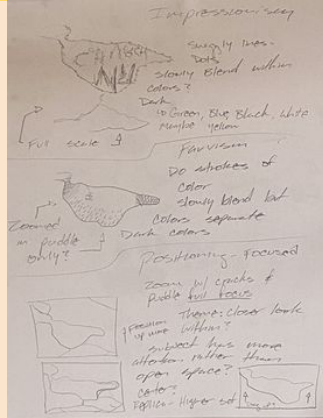 Impressionism
squiggly lines.
Dots
slowly Blend within
colors?
Dark
Green, Blue, Black, White
Maybe yellow
Full scale
Fauvism
Do strokes of
color
slowly blend but
colors separate
Dark colors
Zoomed
in puddle
only?
Positioning - Focused
Zoom w/ cracks &
Puddle full focus
Theme: closer look
within?
subject has more
attention rather than
open space?
Higher set